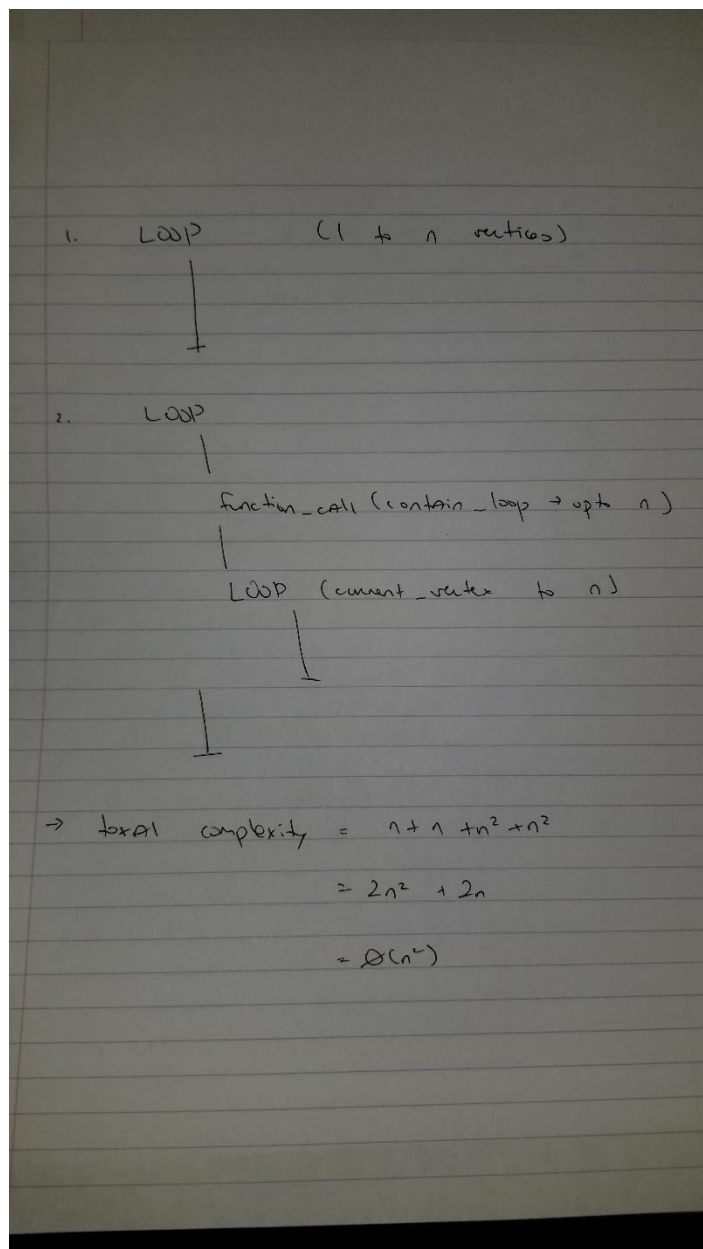 1. LOOP (1 to n vertices)
2. LOOP
function_call (contain_loop → upto n)
LOOP (current_vertex to n)
→ total complexity = n + n + n² + n²
= 2n² + 2n
= θ(n²)